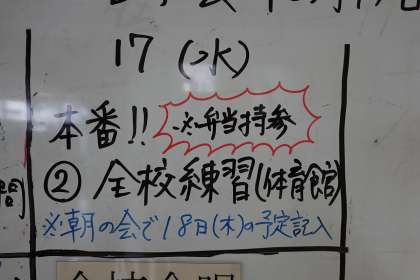 17 (水)
本番!! ※弁当持参
② 全校練習(体育館)
※朝の会で18日(木)の予定記入